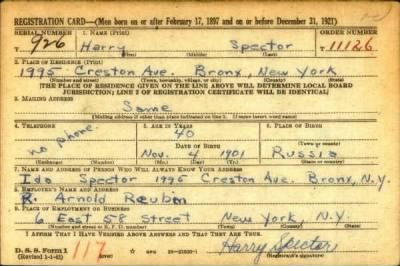 REGISTRATION CARD—(Men born on or after February 17, 1897 and on or before December 31, 1921)
SERIAL NUMBER 1. NAME (Print) ORDER NUMBER
926 Harry Spector 11126
2. PLACE OF RESIDENCE (Print)
1995 Creston Ave. Bronx, New York
(Number and street) (Town, township, village, or city) (County) (State)
[THE PLACE OF RESIDENCE GIVEN ON THE LINE ABOVE WILL DETERMINE LOCAL BOARD
JURISDICTION; LINE 2 OF REGISTRATION CERTIFICATE WILL BE IDENTICAL]
3. MAILING ADDRESS
Same
(Mailing address if other than place indicated on line 2. If same insert word same)
4. TELEPHONE 5. AGE IN YEARS 6. PLACE OF BIRTH
no phone. 40
DATE OF BIRTH
Nov. 4 1901 Russia
7. NAME AND ADDRESS OF PERSON WHO WILL ALWAYS KNOW YOUR ADDRESS
Ida Spector 1995 Creston Ave. Bronx, N.Y.
8. EMPLOYER'S NAME AND ADDRESS
R. Arnold Reuben
9. PLACE OF EMPLOYMENT OR BUSINESS
6 East 58 Street New York, N.Y.
(Number and street or R. F. D. number) (Town) (County) (State)
I AFFIRM THAT I HAVE VERIFIED ABOVE ANSWERS AND THAT THEY ARE TRUE.
D. S. S. Form 1
(Revised 1-1-42) 117 Harry Spector